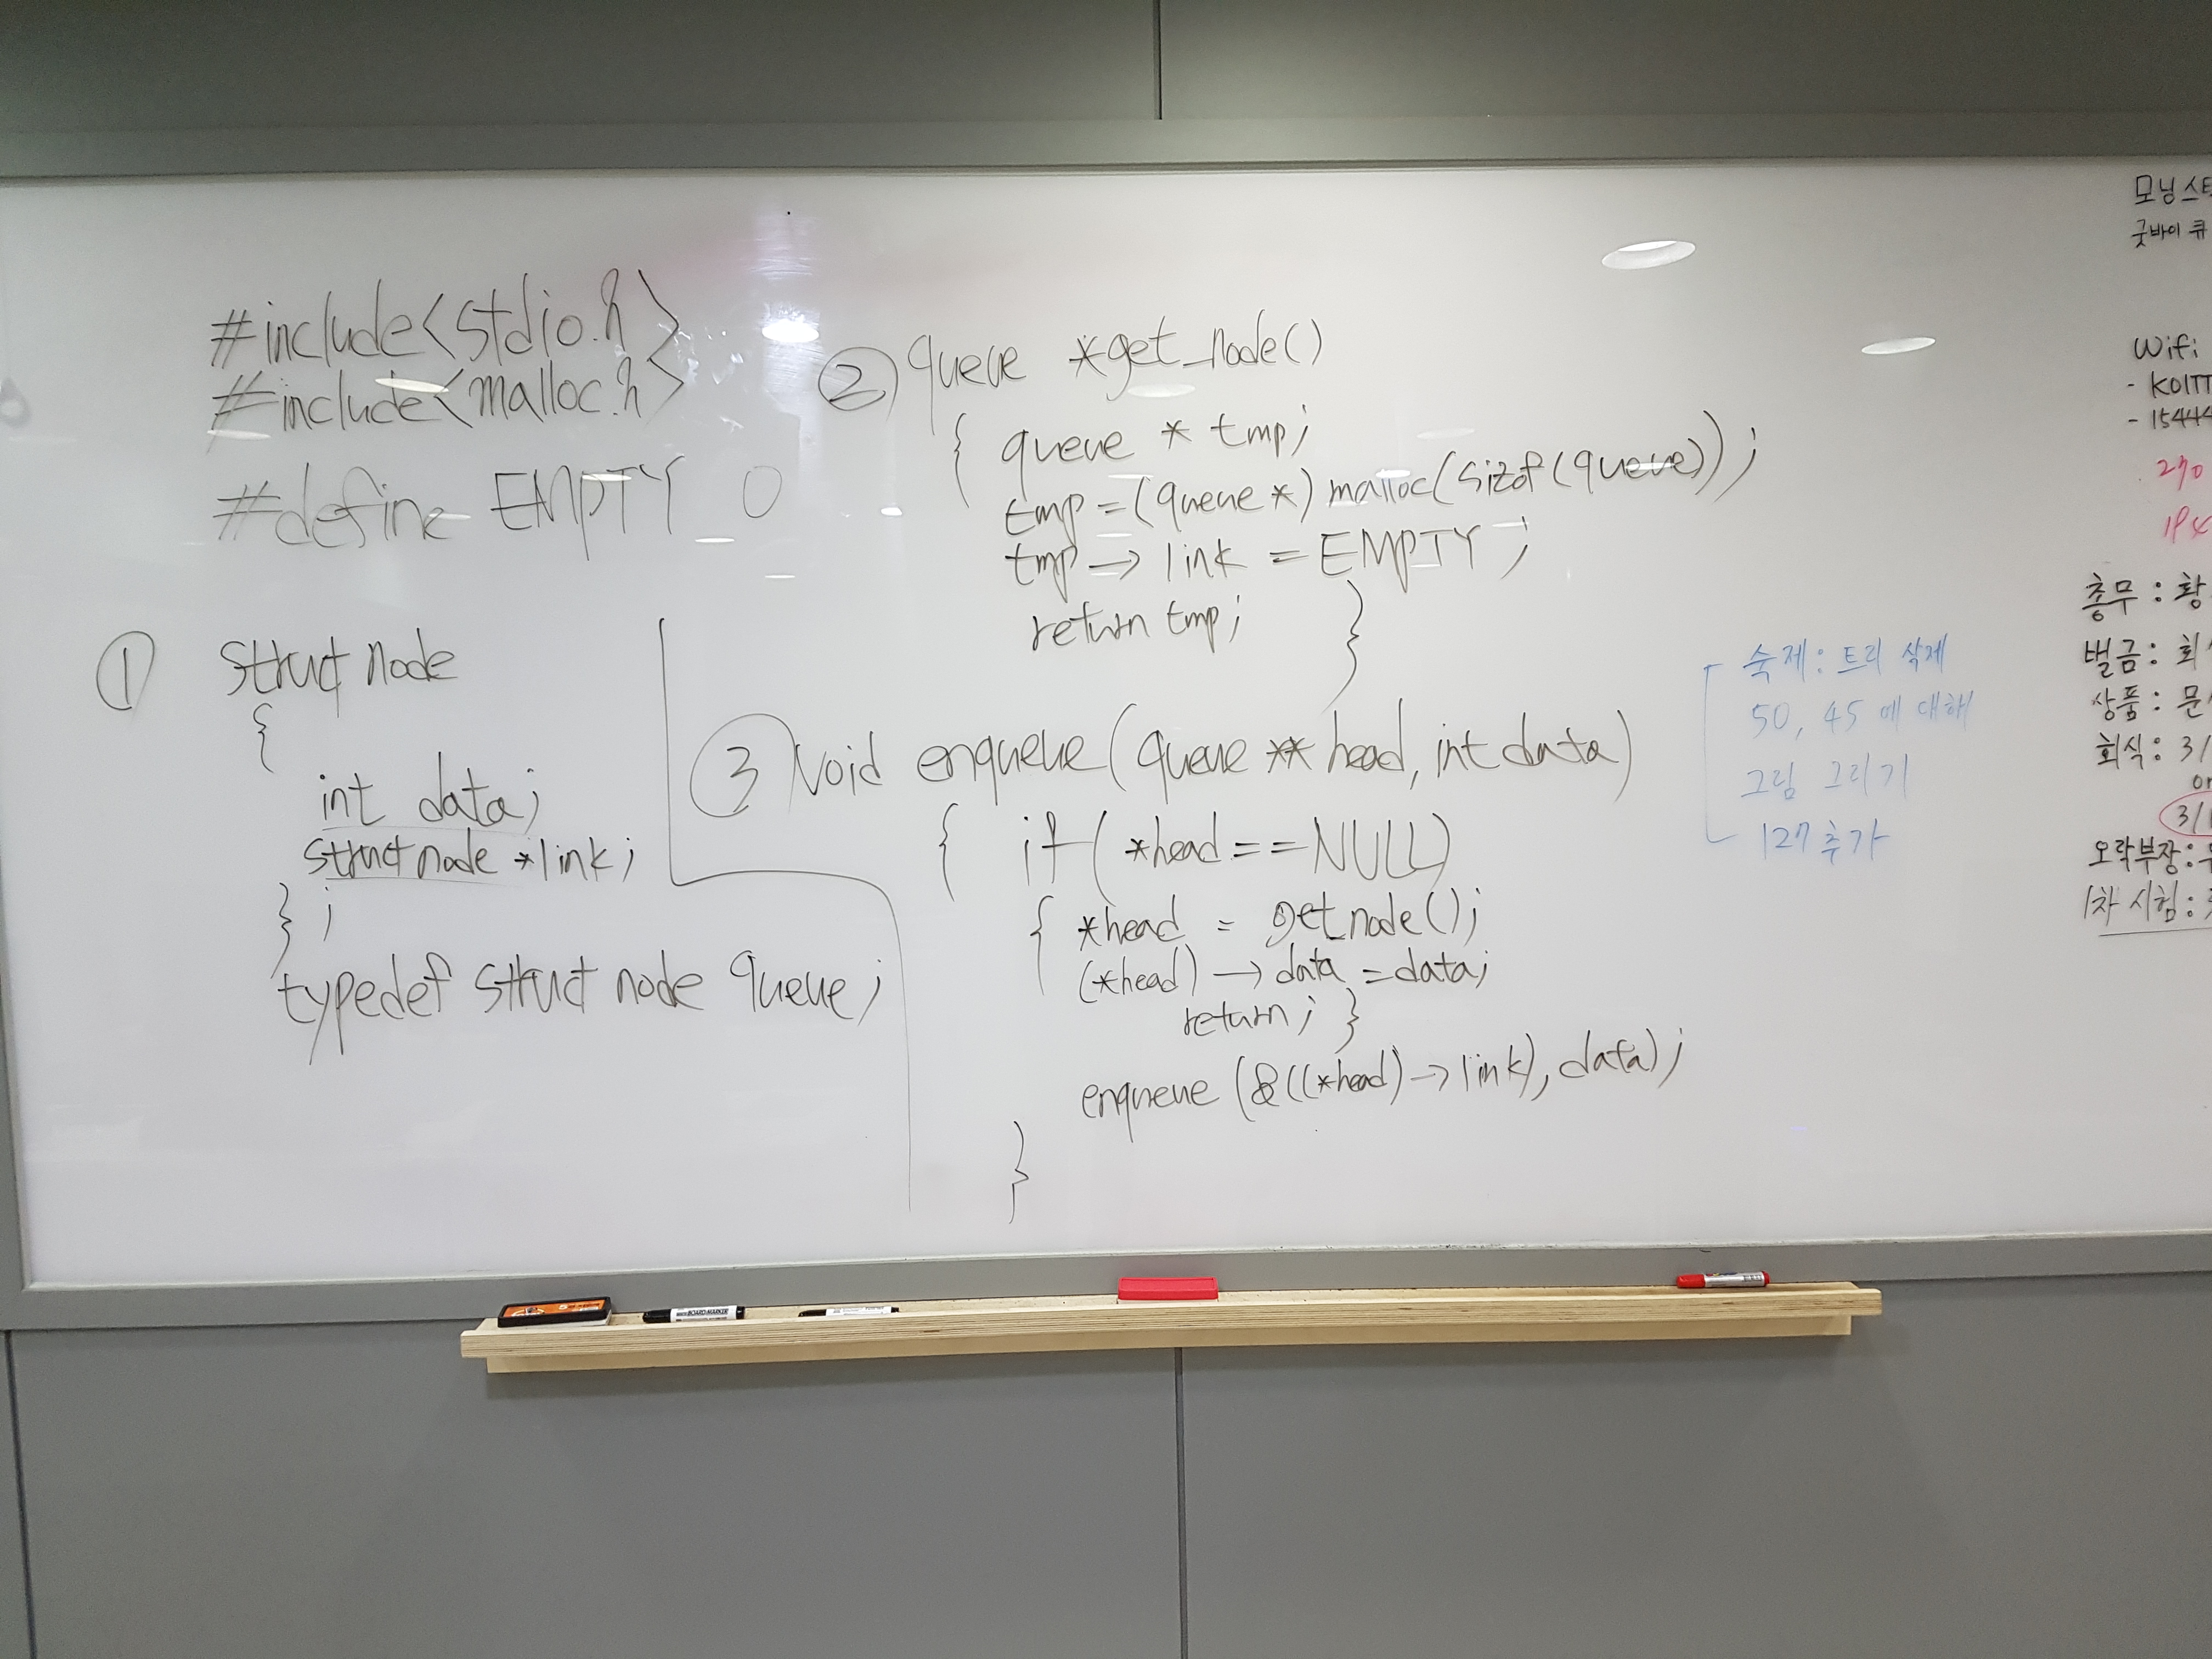 #include<stdio.h>
#include<malloc.h>
#define EMPTY 0
① struct node
{
int data;
struct node *link;
};
typedef struct node queue;
② queue *get_node()
{ queue * tmp;
tmp = (queue *) malloc(sizof(queue));
tmp → link = EMPTY;
return tmp;
}
③ Void enqueue(queue ** head, int data)
{ if( *head == NULL)
{ *head = getnode();
(*head) → data = data;
return; }
enqueue (&((*head) → link), data);
}
숙제: 트리 삭제
50, 45 에 대해
그림 그리기
127 추가
모닝
굿바이 큐
Wifi
- KOITT
- 15444
270
총무 : 황
벌금 :
상품 : 문
회식 : 3/
or
3/
오락부장 :
1차 시험 :